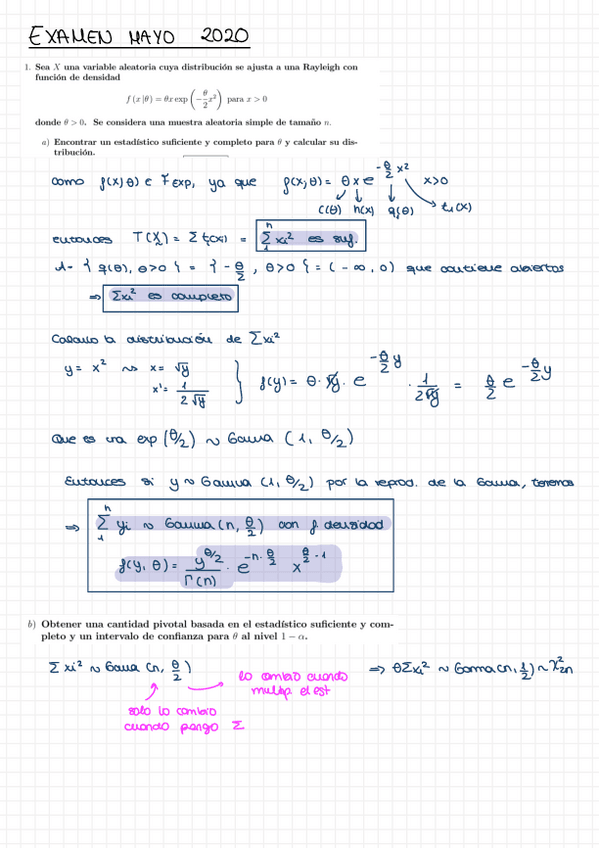 EXAMEN MAYO 2020
1. Sea X una variable aleatoria cuya distribución se ajusta a una Rayleigh con
función de densidad
f (x |θ) = θx exp(−θ/2 x²) para x > 0
donde θ > 0. Se considera una muestra aleatoria simple de tamaño n.
a) Encontrar un estadístico suficiente y completo para θ y calcular su dis-
tribución.
como f(x;θ) ∈ Fexp, ya que f(x;θ) = θ x e^(-θ/2 x²) x>0
C(θ) h(x) q(θ) t₁(x)
entonces T(X) = Σ t(xi) = Σ₁ⁿ xi² es suf.
Λ = { q(θ), θ>0 } = { -θ/2 , θ>0 } = (-∞, 0) que contiene abiertos
⇒ Σxi² es completo
Calculo la distribución de Σxi²
y = x² ⇝ x = √y
x' = 1/(2√y)
f(y) = θ · √y · e^(-θ/2 y) · 1/(2√y) = θ/2 e^(-θ/2 y)
Que es una exp(θ/2) ~ Gamma (1, θ/2)
Entonces si y ~ Gamma (1, θ/2) por la reprod. de la Gamma, tenemos
⇒ Σ₁ⁿ yi ~ Gamma (n, θ/2) con f densidad
f(y, θ) = y^(θ/2)/Γ(n) · e^(-n·θ/2) x^(θ/2 - 1)
b) Obtener una cantidad pivotal basada en el estadístico suficiente y com-
pleto y un intervalo de confianza para θ al nivel 1 − α.
Σ xi² ~ Gamma (n, θ/2) ⇒ θΣxi² ~ Gamma (n, 1/2) ~ χ²2n
lo cambio cuando
multip el est
solo lo cambio
cuando pongo Σ